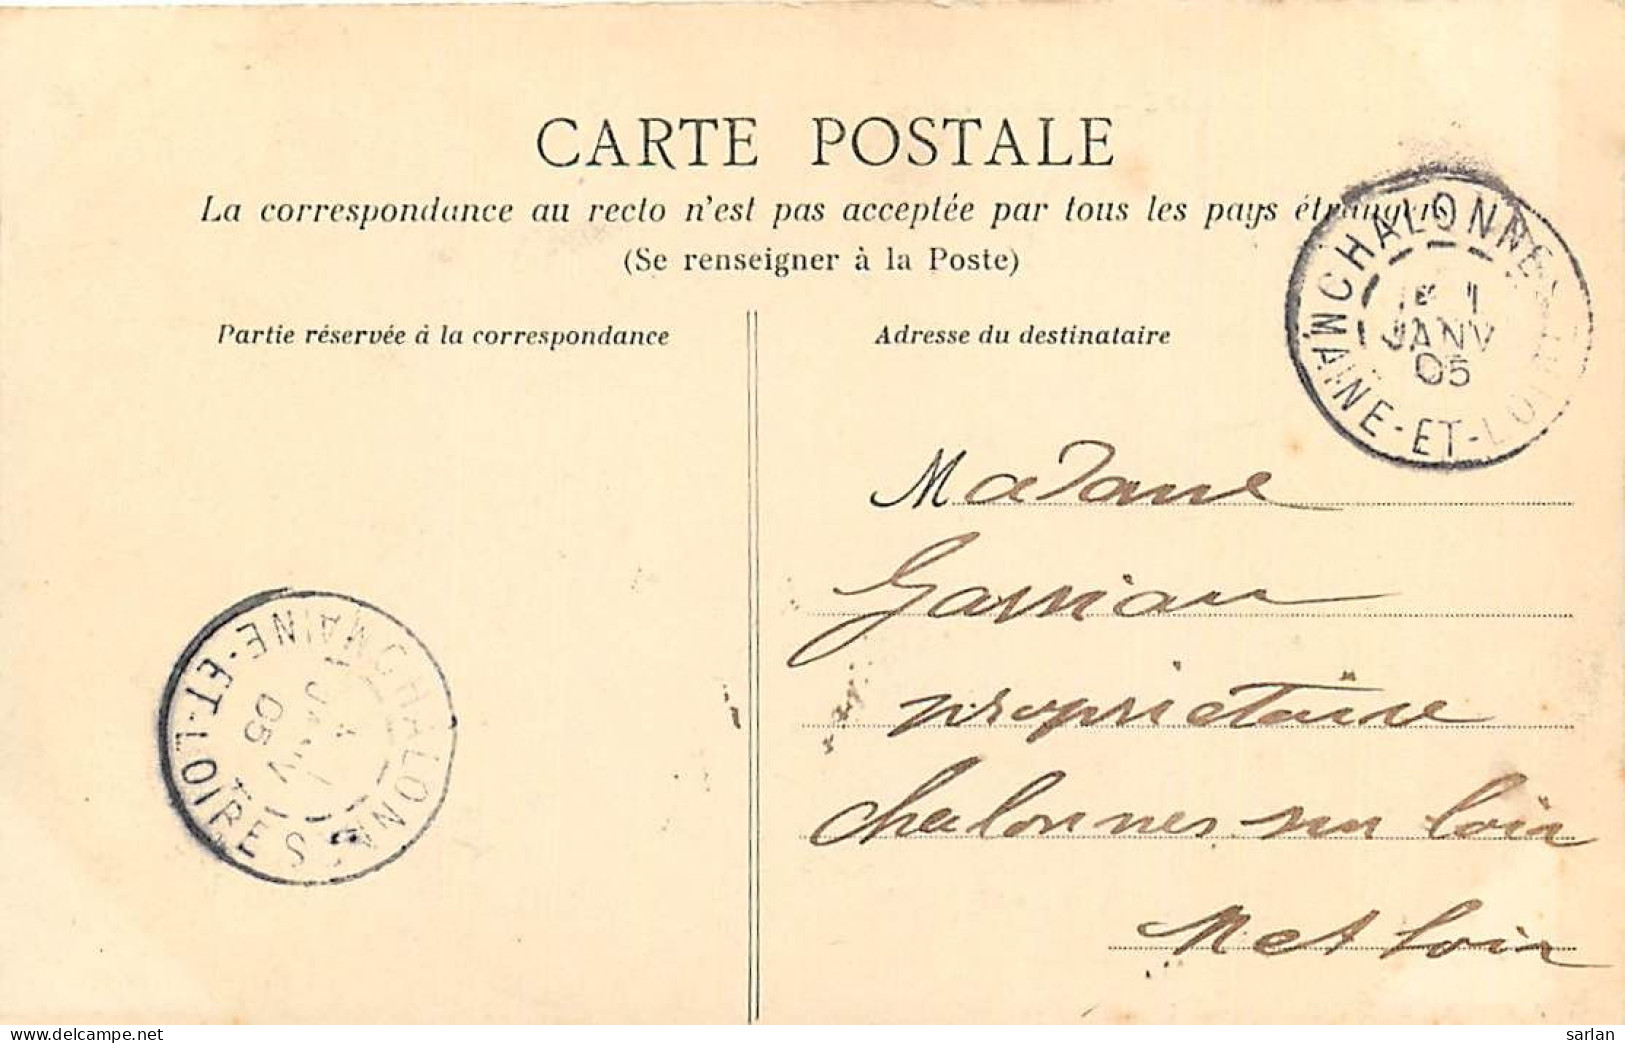 CARTE POSTALE
La correspondance au recto n'est pas acceptée par tous les pays étrangers
(Se renseigner à la Poste)
Partie réservée à la correspondance
Adresse du destinataire
CHALONNES
1
JANV
05
MAINE-ET-LOIRE
Madame
propriétaire
chalonnes sur loir
M et loir
CHALONNES
JANV
05
MAINE-ET-LOIRE
www.delcampe.net
sarlan